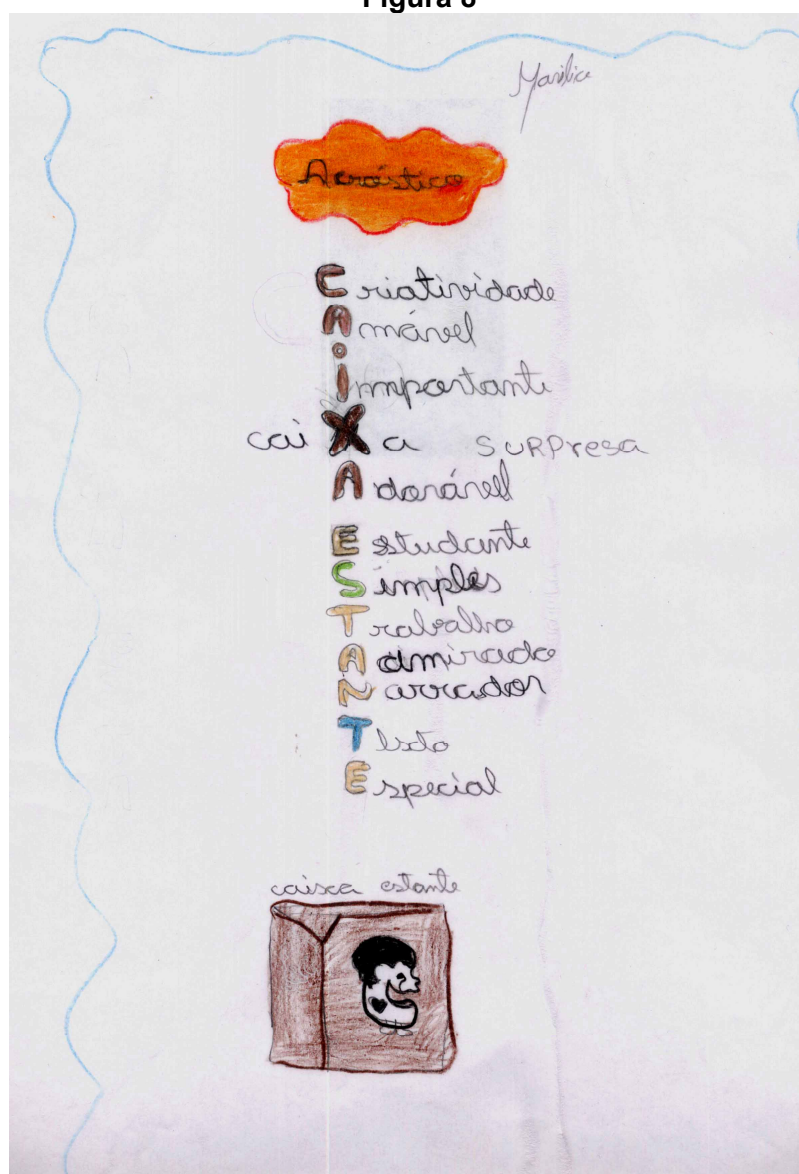 Figura 6
Marilice
Acróstico
Criatividade
Amável
importante
caiXa SURPresa
Adorável
Estudante
Simples
Trabalho
Admirado
Narrador
Texto
Especial
caixa estante